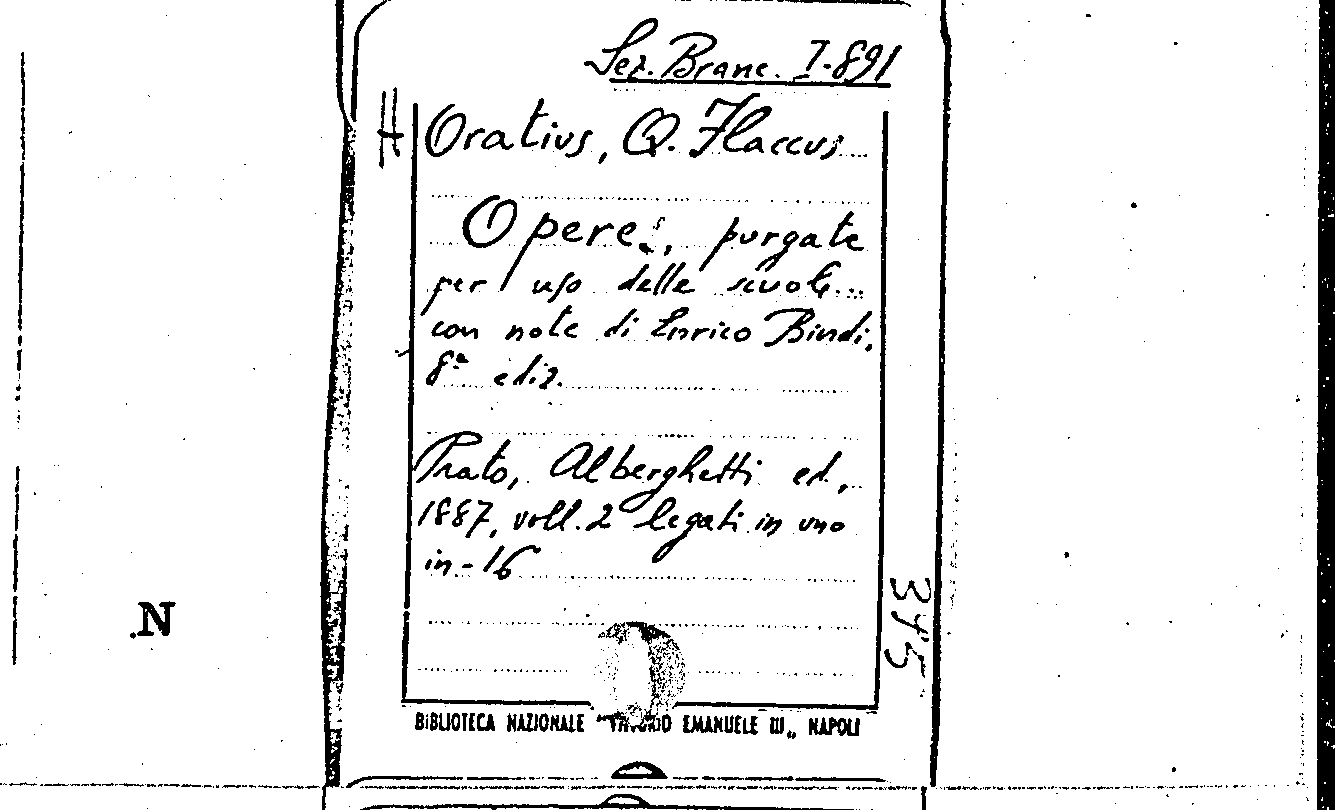 Sez. Branc. I-891
H Oratius, Q. Flaccus
Opere, purgate
per uso delle scuole...
con note di Enrico Bindi.
8ª ediz.
Prato, Alberghetti ed.,
1887, voll. 2 legati in uno
in-16
345
N
BIBLIOTECA NAZIONALE "VITTORIO EMANUELE III„ NAPOLI